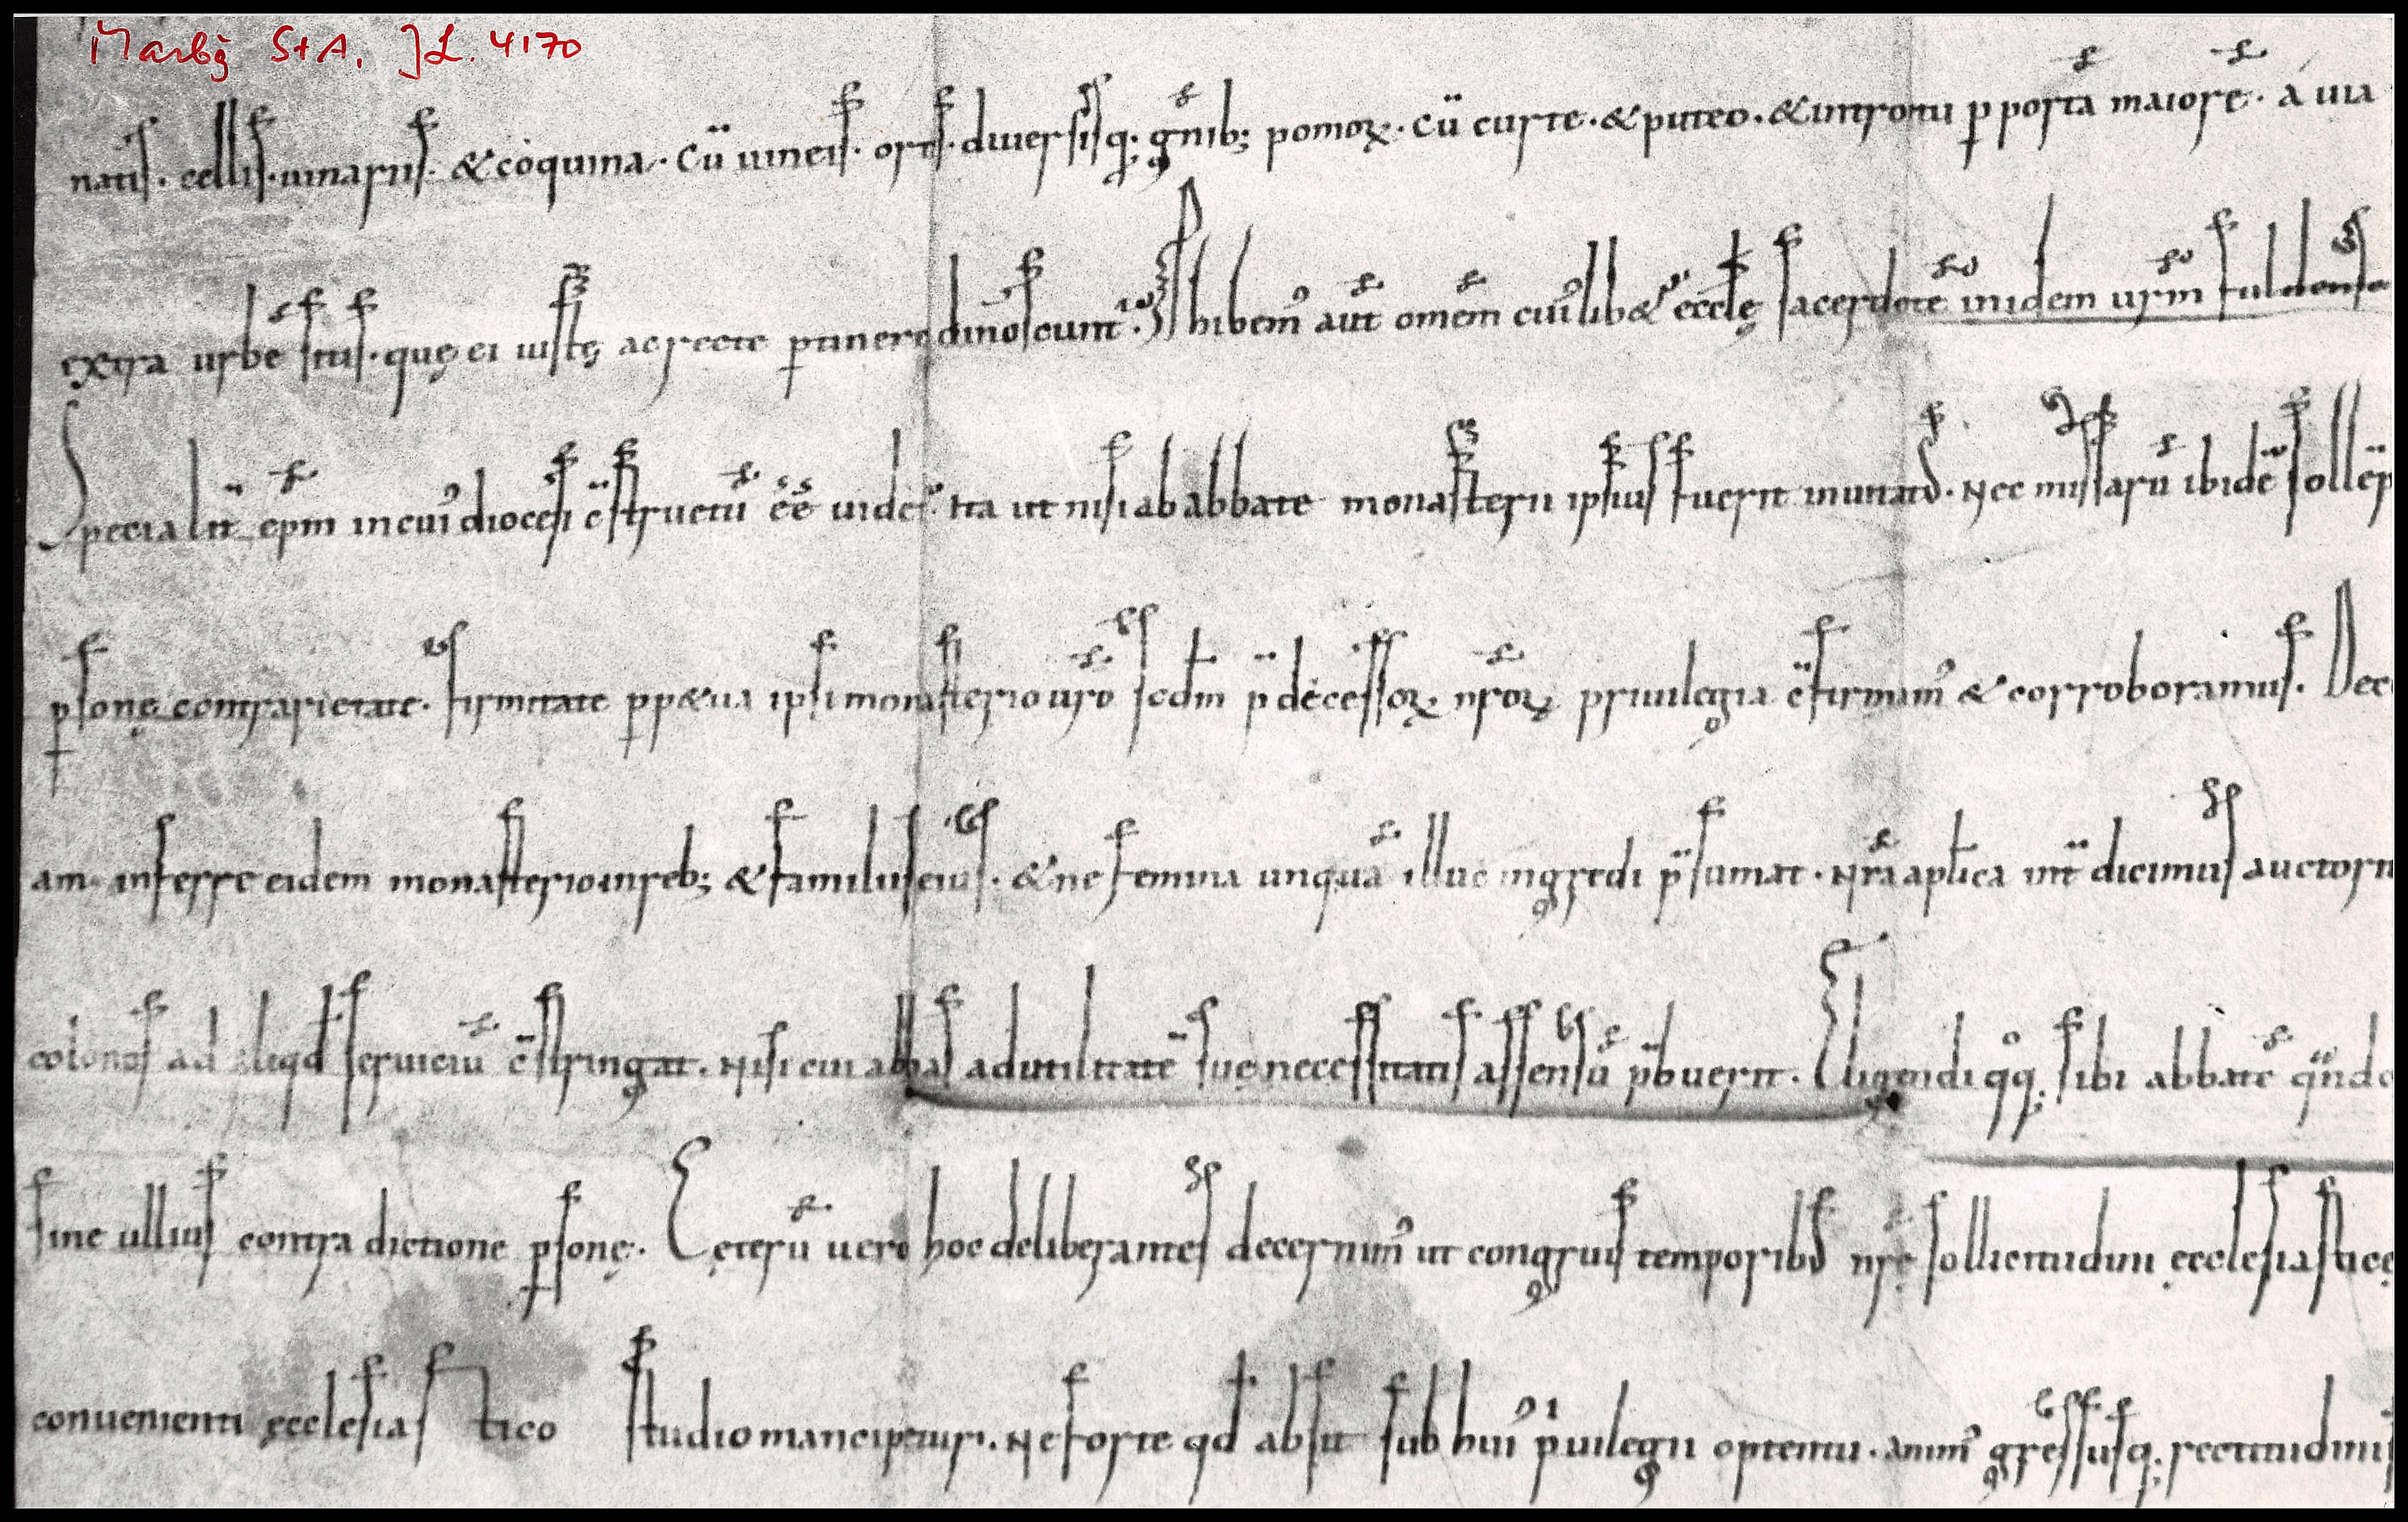 Marbg StA, JL. 4170
natis. cellis. uinariis. & coquina. Cū uineis. ortis. diuersisq; gnib; pomoꝝ. Cū curte. & puteo. & introitu ꝑ portā maiorē. a uia
extra urbē situs. quę ei iustę ac recte ꝑtinere dinoscunt. Phibem᾽ aūt omēm cui᾽lib& ęccle sacerdotē inidem urm fuldense
Specialit epm in cui᾽ diocesi c̄structū eē uidet᾽. ita ut nisi ab abbate monasterii ipsius fuerit inuitatus. Nec missarū ibidē sollēp
ꝑsonę contrarietate. firmitate ꝑp&ua ipsi monasterio uro scdm p̄decessoꝝ nroꝝ priuilegia c̄firmam᾽ & corroboramus. Dec
am inferre eidem monasterio in reb; & familiis eius. & ne femina unquā illuc ingredi p̄sumat. Nra aplica int̄dicimus auctorit
colonos ad aliqd seruiciū c̄stringat. Nisi cui abbas ad utilitatē suę necessitatis assensū p̄buerit. Eligendi qq; sibi abbatē q̄ndo
sine ullius contradictione ꝑsonę. Ceterū uero hoc deliberantes decernim᾽ ut congruis temporibus nrę sollicitudini ecclesiasticę
conuenienti ęcclesiastico studio mancipetur. Ne forte qd absit sub hui᾽ p̄uilegii optentu. anim᾽ gressusq; rectitudinis